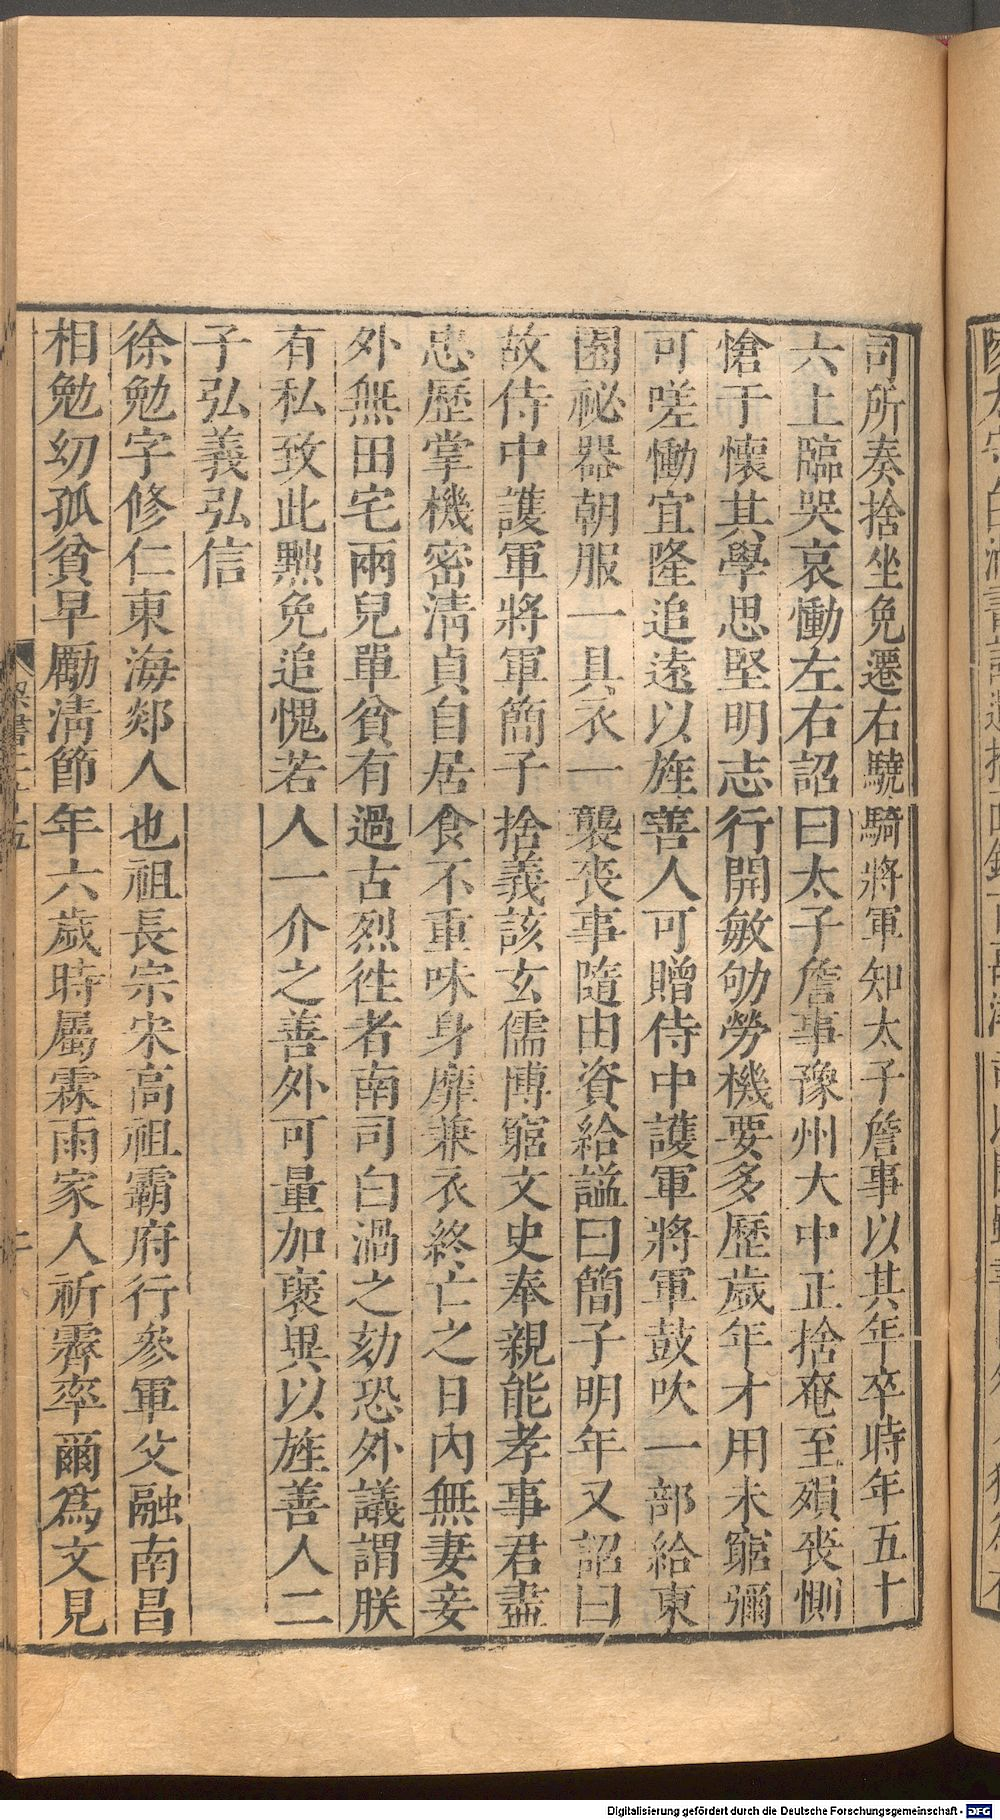 司所奏捨坐免遷右驍騎將軍知太子詹事以其年卒時年五十
六上臨哭哀慟左右詔曰太子詹事豫州大中正捨奄至殞喪惻
愴于懷其學思堅明志行開敏劬勞機要多歷歲年才用未窮彌
可嗟慟宜隆追遠以旌善人可贈侍中護軍將軍鼓吹一部給東
園祕器朝服一具衣一襲喪事隨由資給諡曰簡子明年又詔曰
故侍中護軍將軍簡子捨義該玄儒博窮文史奉親能孝事君盡
忠歷掌機密清貞自居食不重味身靡兼衣終亡之日內無妻妾
外無田宅兩兒單貧有過古烈徃者南司白渦之劾恐外議謂朕
有私致此黜免追愧若人一介之善外可量加褒異以旌善人二
子弘義弘信
徐勉字修仁東海郯人也祖長宗宋高祖霸府行參軍父融南昌
相勉幼孤貧早勵清節年六歲時屬霖雨家人祈霽率爾爲文見
Digitalisierung gefördert durch die Deutsche Forschungsgemeinschaft - DFG